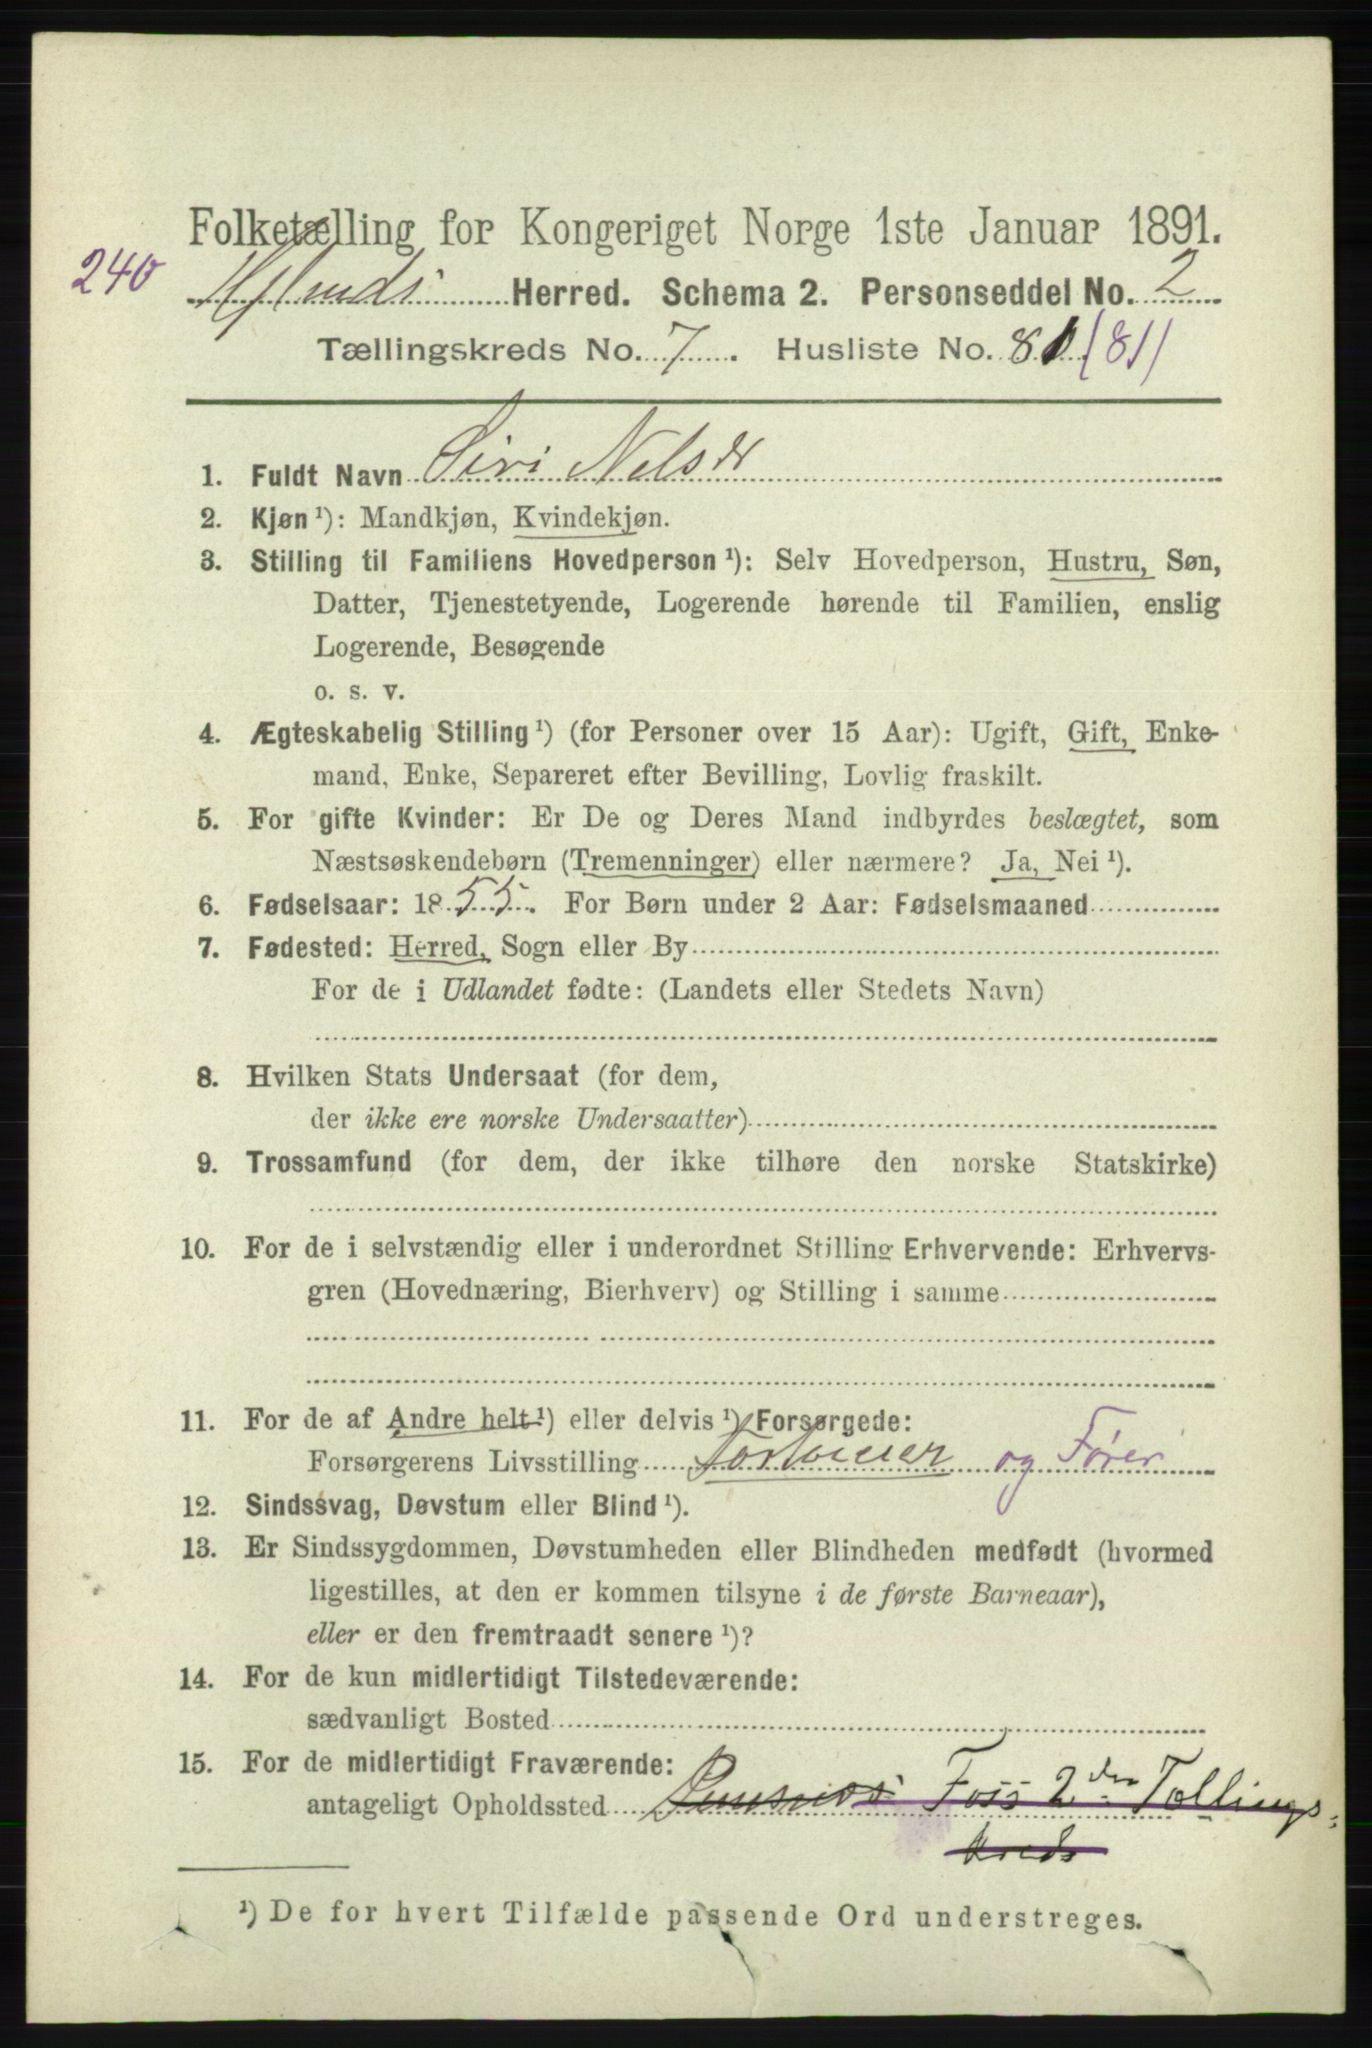 Folketælling for Kongeriget Norge 1ste Januar 1891.
240
Herred. Schema 2. Personseddel No. 2
Tællingskreds No. 7. Husliste No. 81 (81)
1. Fuldt Navn Siri Nelsdr
2. Kjøn ¹): Mandkjøn, Kvindekjøn.
3. Stilling til Familiens Hovedperson ¹): Selv Hovedperson, Hustru, Søn,
Datter, Tjenestetyende, Logerende hørende til Familien, enslig
Logerende, Besøgende
o. s. v.
4. Ægteskabelig Stilling ¹) (for Personer over 15 Aar): Ugift, Gift, Enke-
mand, Enke, Separeret efter Bevilling, Lovlig fraskilt.
5. For gifte Kvinder: Er De og Deres Mand indbyrdes beslægtet, som
Næstsøskendebørn (Tremenninger) eller nærmere? Ja, Nei ¹).
6. Fødselsaar: 1855. For Børn under 2 Aar: Fødselsmaaned
7. Fødested: Herred, Sogn eller By
For de i Udlandet fødte: (Landets eller Stedets Navn)
8. Hvilken Stats Undersaat (for dem,
der ikke ere norske Undersaatter)
9. Trossamfund (for dem, der ikke tilhøre den norske Statskirke)
10. For de i selvstændig eller i underordnet Stilling Erhvervende: Erhvervs-
gren (Hovednæring, Bierhverv) og Stilling i samme
11. For de af Andre helt ¹) eller delvis ¹) Forsørgede:
Forsørgerens Livsstilling og Fører
12. Sindssvag, Døvstum eller Blind ¹).
13. Er Sindssygdommen, Døvstumheden eller Blindheden medfødt (hvormed
ligestilles, at den er kommen tilsyne i de første Barneaar),
eller er den fremtraadt senere ¹)?
14. For de kun midlertidigt Tilstedeværende:
sædvanligt Bosted
15. For de midlertidigt Fraværende:
antageligt Opholdssted Foss 2den Tællings-
kreds
¹) De for hvert Tilfælde passende Ord understreges.